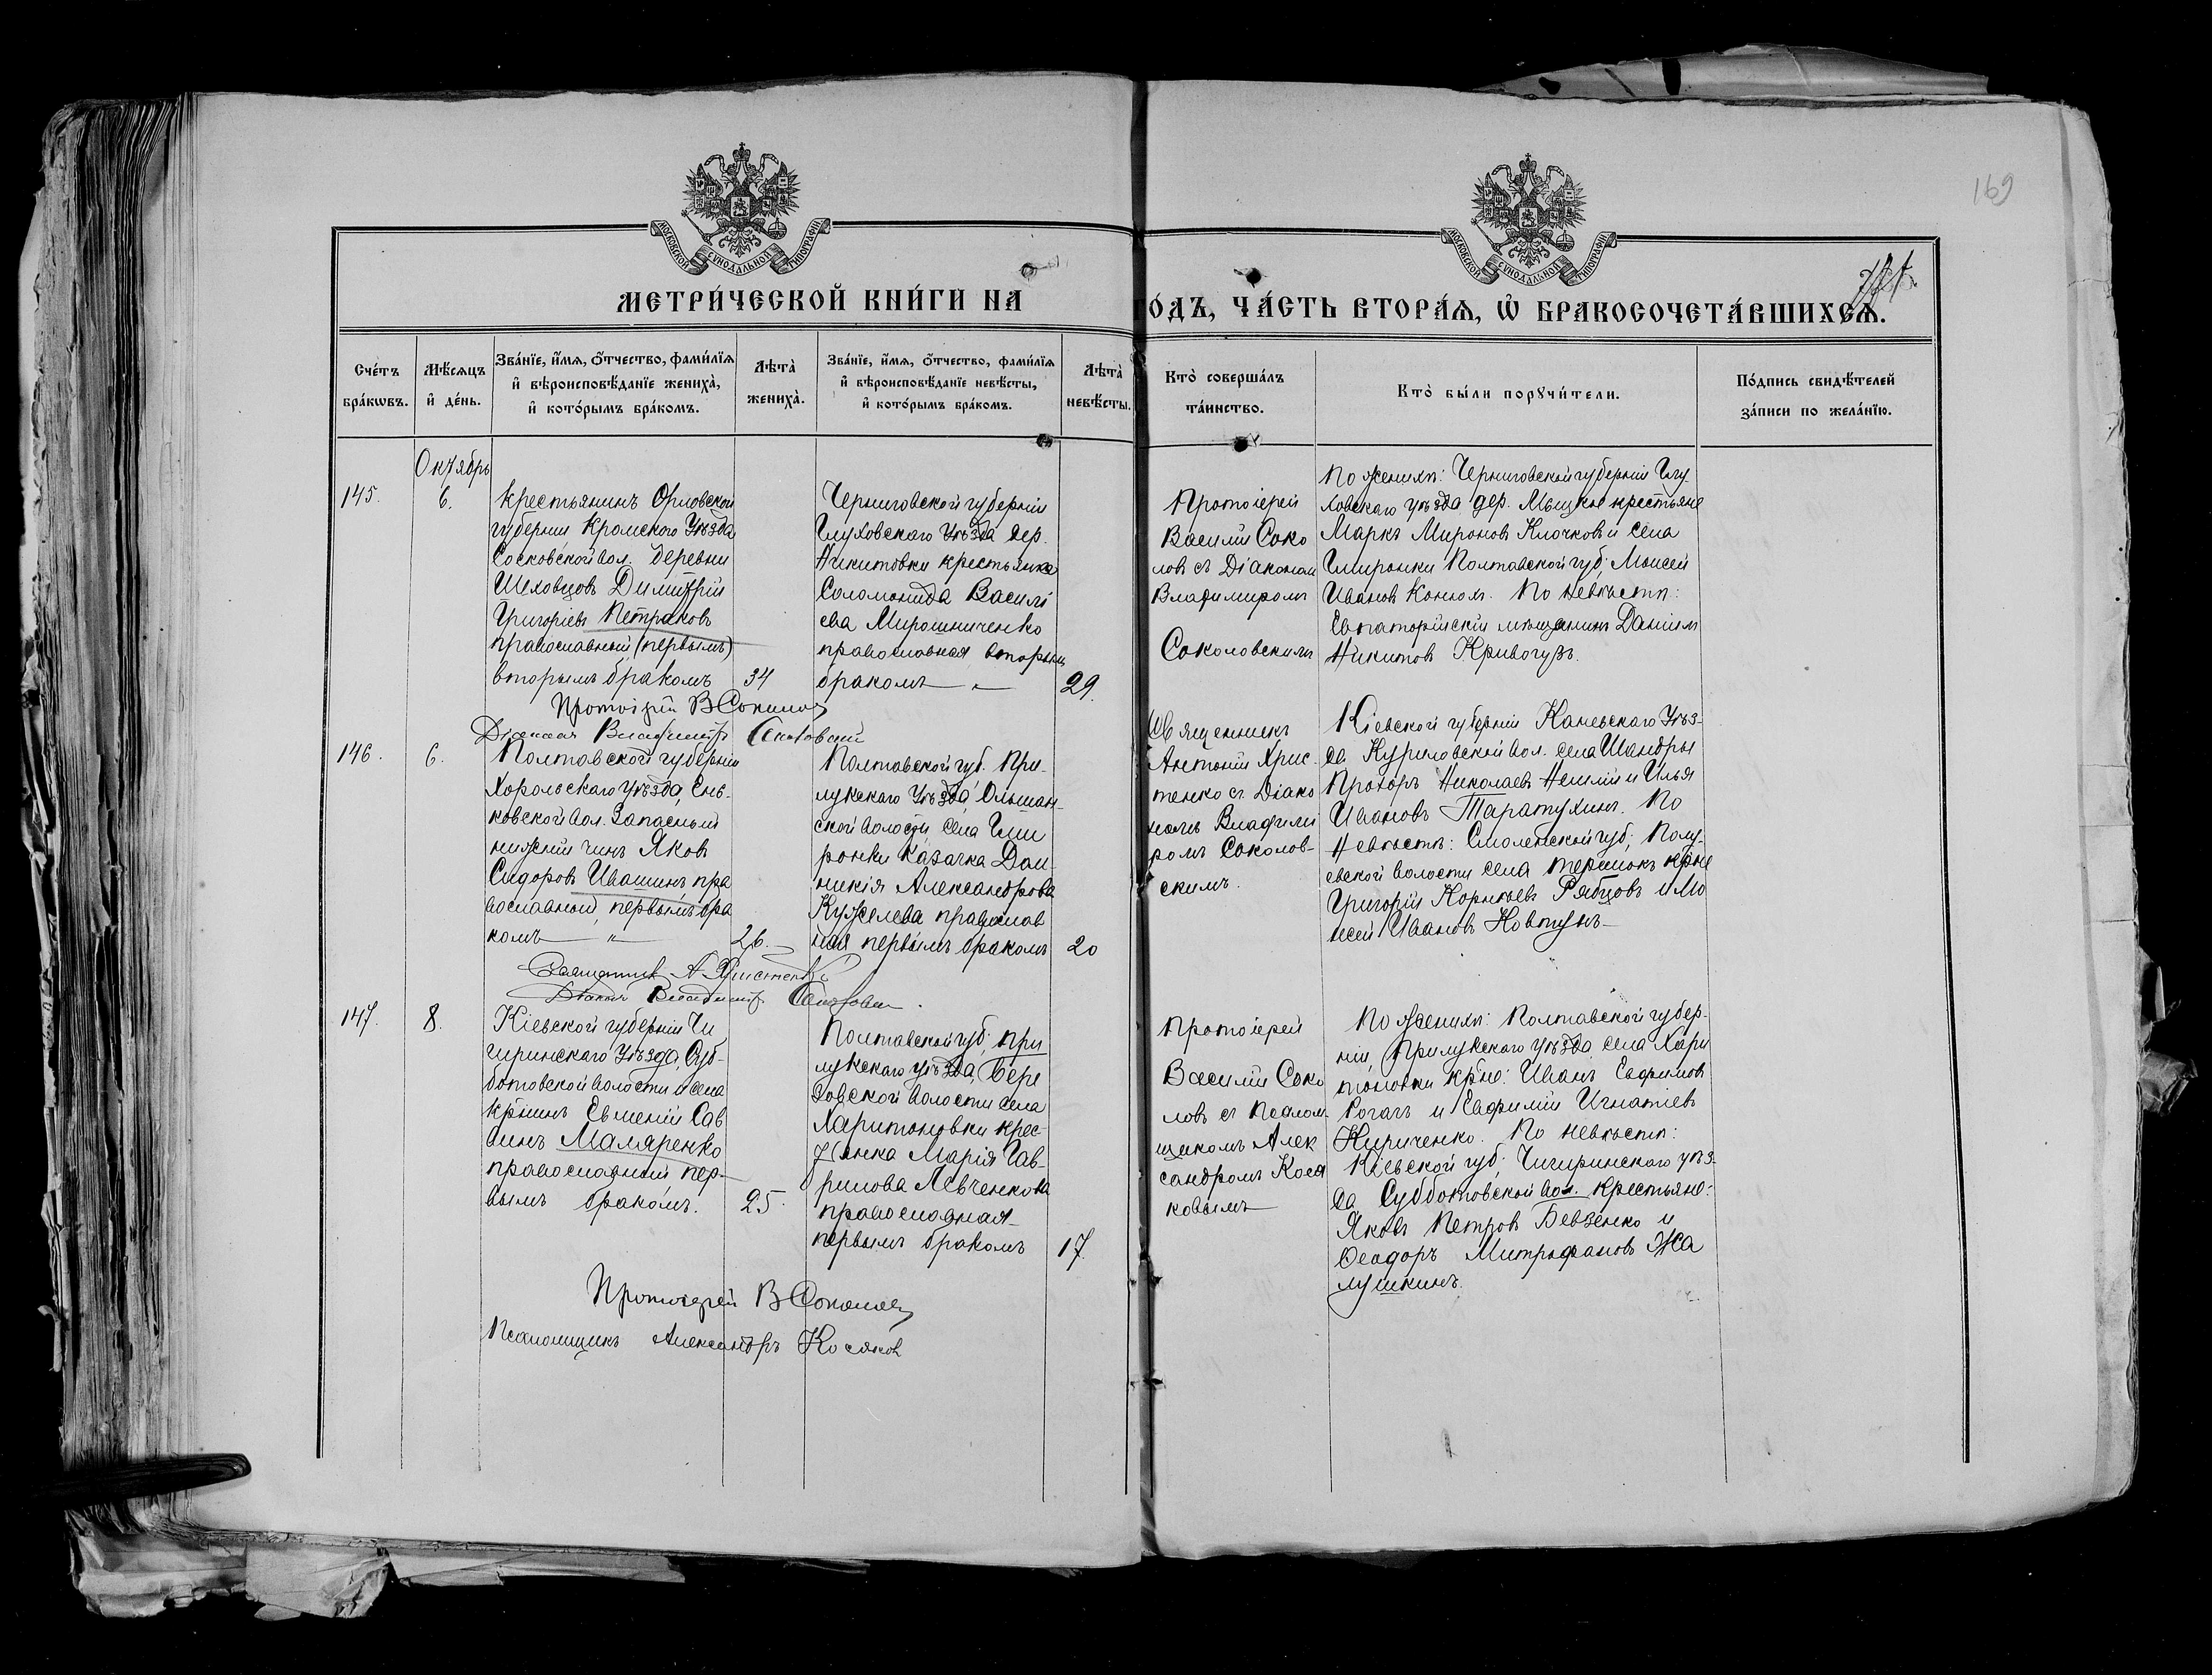 169
МОСКОВСКОЙ СѴНОДАЛЬНОЙ ТИПОГРАФІИ
МОСКОВСКОЙ СѴНОДАЛЬНОЙ ТИПОГРАФІИ
МЕТРИ́ЧЕСКОЙ КНИ́ГИ НА
ГО́ДЪ, ЧА́СТЬ ВТОРА́Ѧ, Ѡ҆ БРАКОСОЧЕТА́ВШИХСѦ.
Сче́тъ
бра́кѡвъ.
Мѣ́сѧцъ
и҆ де́нь.
Зва́нїе, и҆́мѧ, о҆́тчество, фамѝлїѧ
и҆ вѣроисповѣ́данїе жениха̀,
и҆ кото́рымъ бра́комъ.
Лѣта̀
жениха̀.
Зва́нїе, и҆́мѧ, о҆́тчество, фамѝлїѧ
и҆ вѣроисповѣ́данїе невѣ́сты,
и҆ кото́рымъ бра́комъ.
Лѣта̀
невѣ́сты.
Кто̀ соверша́лъ
та́инство.
Кто̀ бы́ли порꙋчи́тели.
По́дпись свидѣ́телей
за́писи по жела́нїю.
Октябрь
145.
6.
Крестьянинъ Орловской
губерніи Кромского Уѣзда
Сосковской вол. деревни
Шеховцовъ Димитрій
Григоріевъ Петраковъ
православный (первымъ)
вторымъ бракомъ
34
Черниговской губерніи
Глуховскаго Уѣзда дер.
Никитовки крестьянка
Соломонида Василі
ева Мирошниченко
православная вторым
бракомъ — „ —
29.
Протоіерей
Василій Соко
ловъ съ Діаконом
Владимиромъ
Соколовскимъ
По женихѣ: Черниговской губерніи Глу
ховскаго уѣзда дер. крестьяне
Маркъ Мироновъ Клочковъ и села
Гмирянки Полтавской губ. Моисей
Ивановъ По Невѣстѣ:
Евпаторійскій мѣщанинъ Даніилъ
Никитовъ Кривогузъ.
Протоіерей В Соколов
Діакон Владимір Соколовскій
146.
6.
Полтавской губерніи
Хорольскаго уѣзда, Ень-
ковской вол. Запасный
нижній чинъ Яковъ
Сидоровъ Ивашинъ пра
вославный, первымъ бра
комъ — „
26. —
Полтавской губ. При-
лукскаго Уѣзда, Ольшан-
ской волости, села Гми
рянки казачка Дом-
никія Александрова
Кужелева православ
ная первымъ бракомъ
20
Священникъ
Антоній Хрис-
тенко съ Діако
номъ Владими
ромъ Соколов-
скимъ.
Кіевской губерніи Каневскаго Уѣз-
да Куриловской вол. села Шандры
Прохоръ Николаевъ и Илья
Ивановъ Таратухинъ. По
Невѣстѣ: Смоленской губ.,
евской волости села крне
Григорій Корнѣевъ Рябцовъ и Мо
исей Ивановъ Ковтунъ —
Священник А. Христенко
Діакон Владимір Соколовскій.
147.
8.
Кіевской губерніи Чи
гиринскаго Уѣзда, Суб-
ботовской волости и села
крнинъ Евменій Сав
винъ Маляренко
православный, пер-
вымъ бракомъ.
25.
Полтавской губ. При
лукскаго уѣзда, Бере
зовской волости села
Харитоновки крес-
тьянка Марія Гав-
рилова Левченкова
православная
первымъ бракомъ
17.
Протоіерей
Василій Соко
ловъ съ Псалом-
щикомъ Алек
сандромъ Кося
ковымъ
По женихѣ: Полтавской губер-
ніи, Прилукскаго уѣзда села Хари
тоновки крне: Иванъ Евфимовъ
Рогачъ и Евфимій Игнатіевъ
Кириченко. По невѣстѣ:
Кіевской губ, Чигиринскаго уѣз-
да Субботовской вол. крестьяне:
Яковъ Петровъ Бевзенко и
Ѳеодоръ Митрофановъ Жа
лушкинъ.
Протоіерей В Соколов
Псаломщикъ Александръ Косяков